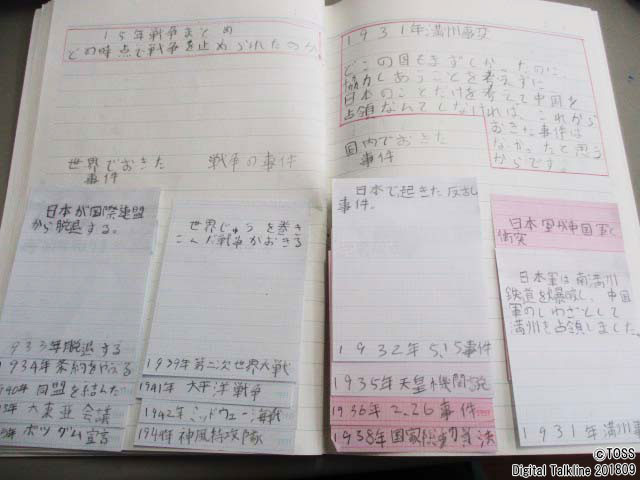 15年戦争まとめ
どの時点で戦争を止められたのか
世界でおきた
事件
戦争の事件
日本が国際連盟
から脱退する。
933年脱退する
1934年条約をやめる
1940年同盟を結んだ
大東亜会議
ポツダム宣言
世界じゅうを巻き
こんだ戦争がおきる
1939年第二次世界大戦
1941年太平洋戦争
1942年ミッドウェー海戦
1944年神風特攻隊
1931年満州事変
どこの国もまずしかったのに、
協力しあうことを考えずに
日本のことだけを考えて中国を
占領なんてしなければ、これから
おきた事件は
なかったと思う
からです。
国内でおきた
事件
日本で起きた反乱
事件。
1932年5,15事件
1935年天皇機関説
1936年2.26事件
1938年国家総動員法
日本軍が中国軍と
衝突
日本軍は南満州
鉄道を爆破し、中国
軍のしわざとして
満州を占領しました。
1931年満州事
©TOSS
Digital Talkline 201809